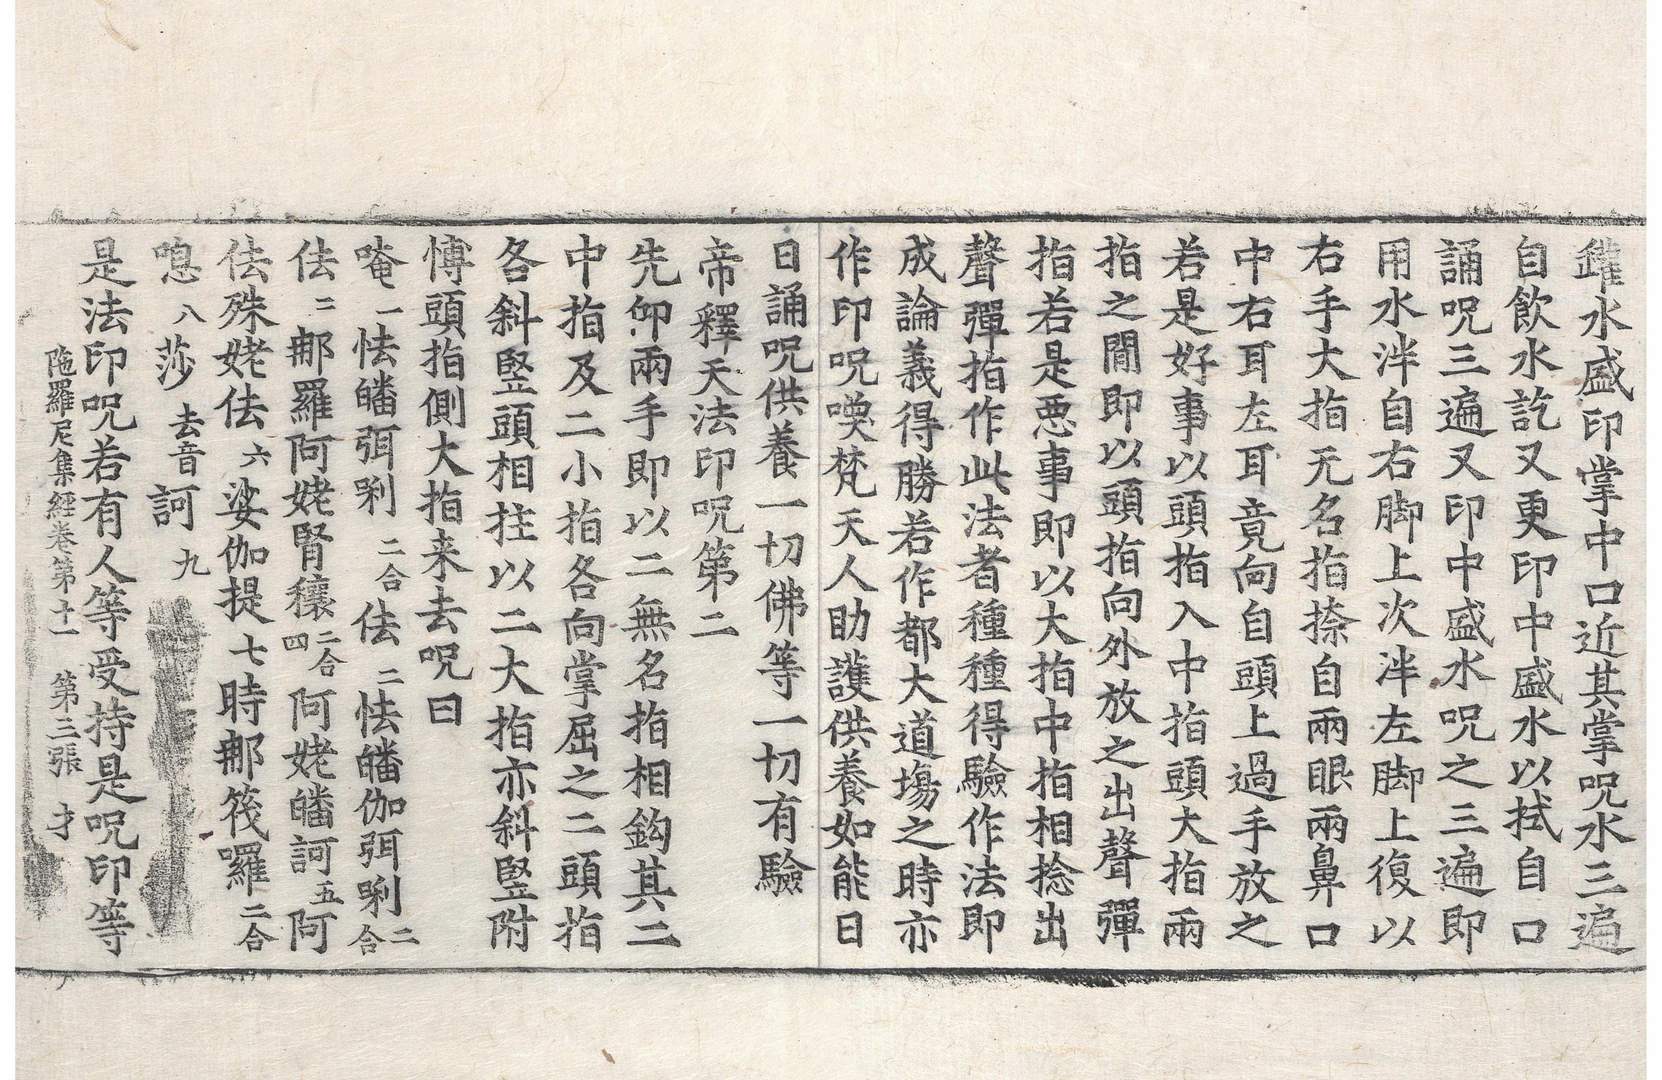 鑵水盛印掌中口近其掌呪水三遍
自飲水訖又更印中盛水以拭自口
誦呪三遍又印中盛水呪之三遍即
用水泮自右脚上次泮左脚上復以
右手大指无名指捺自兩眼兩鼻口
中右耳左耳竟向自頭上過手放之
若是好事以頭指入中指頭大指兩
指之間即以頭指向外放之出聲彈
指若是惡事即以大指中指相捻出
聲彈指作此法者種種得驗作法即
成論義得勝若作都大道場之時亦
作印呪喚梵天人助護供養如能日
日誦呪供養一切佛等一切有驗
帝釋天法印呪第二
先仰兩手即以二無名指相鈎其二
中指及二小指各向掌屈之二頭指
各斜竪頭相拄以二大指亦斜竪附
博頭指側大指来去呪曰
唵一怯皤弭唎二合佉二怯皤伽弭唎二合
佉三那羅阿姥腎穰二合四阿姥皤訶五阿
佉殊姥佉六娑伽提七時那筏囉二合
㖶八莎去音訶九
是法印呪若有人等受持是呪印等
陁羅尼集經卷第十一 第三張 才